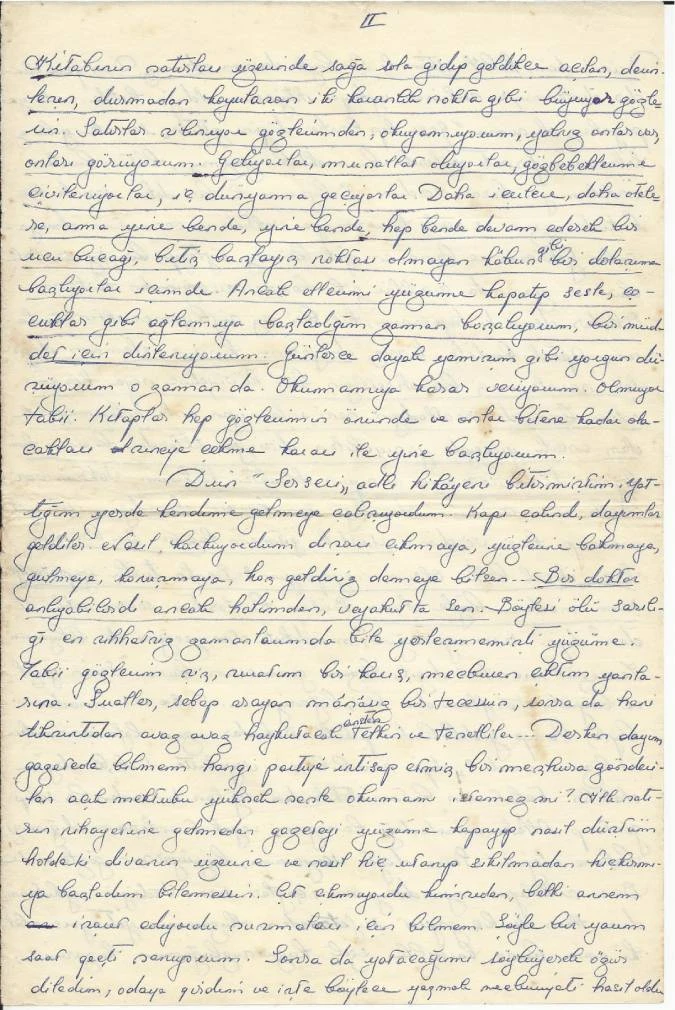 II
Kitabının satırları üzerinde sağa sola gidip geldikçe açılan, derin-
leşen, durmadan koyulaşan iki karanlık nokta gibi büyüyor gözle-
rin. Satırlar siliniyor gözlerimden, okuyamıyorum, yalnız onlar var,
onları görüyorum. Geliyorlar, musallat oluyorlar, gözbebeklerime
çivileniyorlar, iç dünyama geçiyorlar. Daha içerlere, daha ötele-
re, ama yine bende, yine bende, hep bende devam ederek bir
ucu bucağı, bitiş başlayış noktası olmayan kâbus gibi bir dolaşıma
başlıyorlar içimde. Ancak ellerimi yüzüme kapatıp sesle, ço-
cuklar gibi ağlamıya başladığım zaman boşalıyorum, bir müd-
det için dinleniyorum. Günlerce dayak yemişim gibi yorgun dü-
şüyorum o zaman da. Okumamıya karar veriyorum. Olmuyor
tabii. Kitaplar hep gözlerimin önünde ve onlar bitene kadar ola-
cakları sineye çekme kararı ile yine başlıyorum.
Dün "Serseri" adlı hikâyeni bitirmiştim. Yat-
tığım yerde kendime gelmeye çalışıyordum. Kapı çalındı, dayımlar
geldiler. Nasıl korkuyordum dışarı çıkmaya, yüzlerine bakmaya,
gülmeye, konuşmaya, hoş geldiniz demeye bilsen... Bir doktor
anlıyabilirdi ancak halimden, veyahutta sen. Böylesi ölü sarılı-
ğı en sıhhatsiz zamanlarımda bile yerleşmemişti yüzüme.
Tabii gözlerim şiş, suratım bir karış, mecburen çıktım yanla-
rına. Sualler, sebap arayan mânâsız bir tecessüs, sonra da beni
tiksintiden avaz avaz haykırtacak cinsten telkin ve teselliler... Derken dayım
gazetede bilmem hangi partiye intisap etmiş bir mebusa gönderi-
len açık mektubu yüksek sesle okumamı istemez mi? İlk satı-
rın nihayetine gelmeden gazeteyi yüzüme kapayıp nasıl düştüm
holdeki divanın üzerine ve nasıl hiç utanıp sıkılmadan hıçkırmı-
ya başladım bilemessin. Çıt çıkmıyordu kimseden, belki annem
işaret ediyordu susmaları için bilmem. Şöyle bir yarım
saat geçti sanıyorum. Sonra da yatacağımı söyliyerek özür
diledim, odaya girdim ve işte böylece yazmak mecburiyeti hasıl oldu